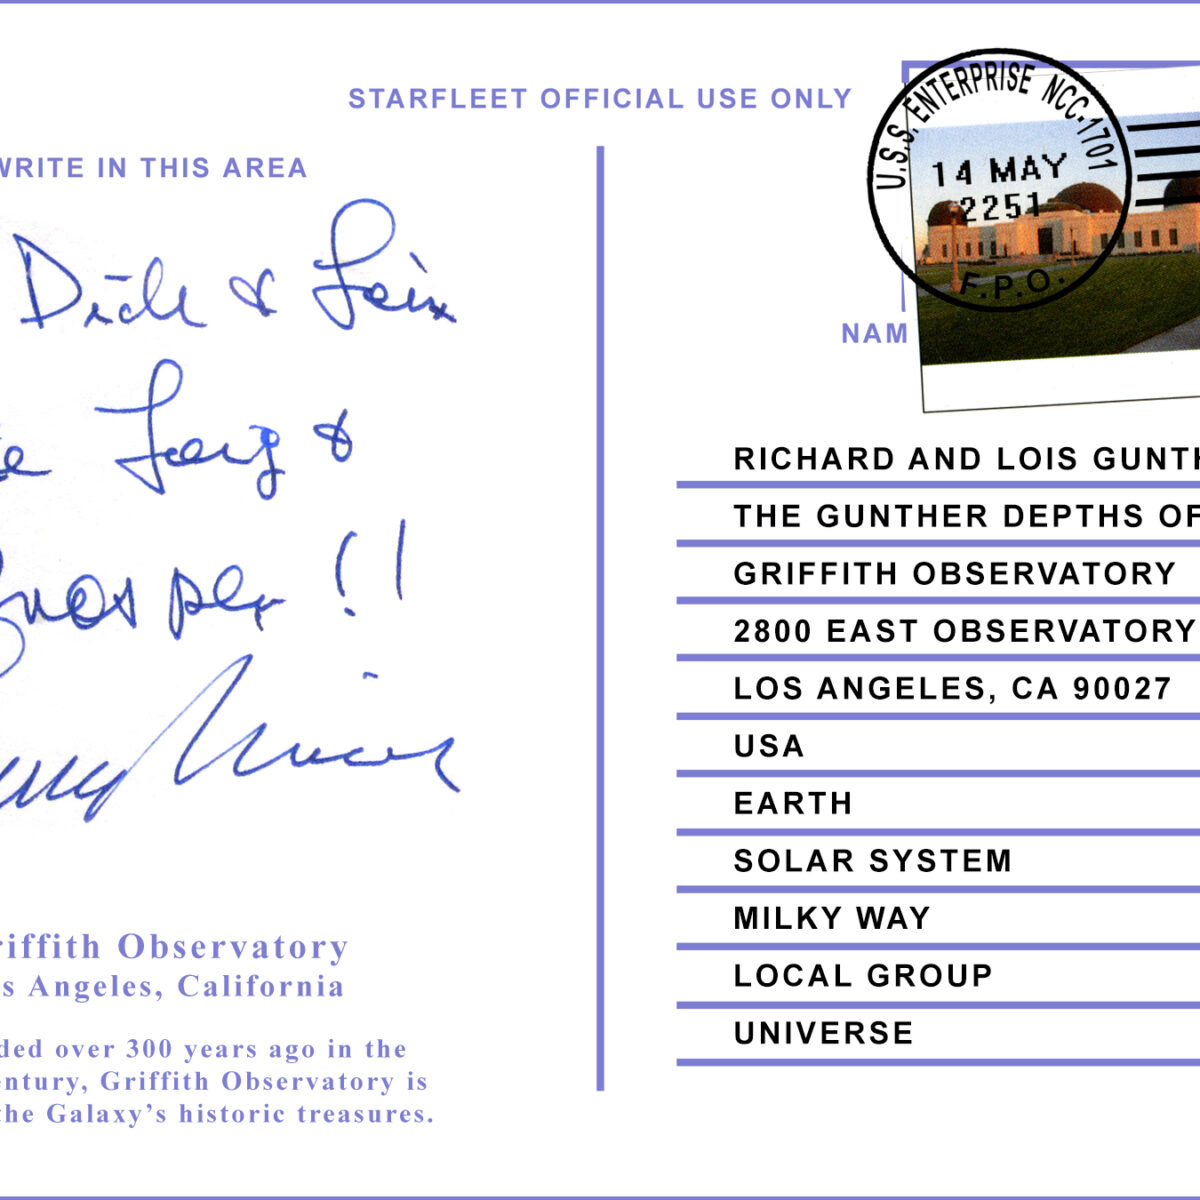 STARFLEET OFFICIAL USE ONLY
WRITE IN THIS AREA
Dick & Lois
Long &
Prosper!!
Nimoy
Griffith Observatory
s Angeles, California
ded over 300 years ago in the
entury, Griffith Observatory is
the Galaxy's historic treasures.
U.S.S. ENTERPRISE NCC-1701
14 MAY
2251
F.P.O.
NAM
RICHARD AND LOIS GUNTH
THE GUNTHER DEPTHS OF
GRIFFITH OBSERVATORY
2800 EAST OBSERVATORY
LOS ANGELES, CA 90027
USA
EARTH
SOLAR SYSTEM
MILKY WAY
LOCAL GROUP
UNIVERSE